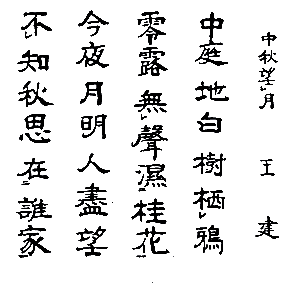 中秋望月 王建
中庭地白樹栖鴉
零露無聲濕桂花
今夜月明人盡望
不知秋思在誰家